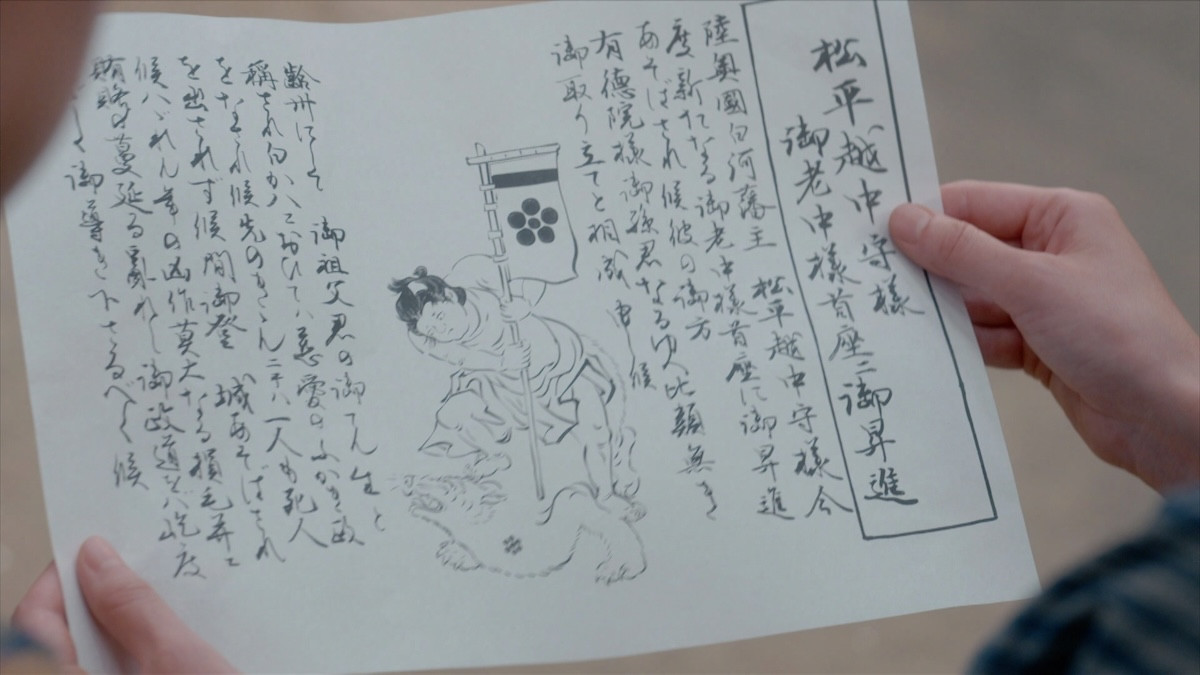 松平越中守様
御老中様首座ニ御昇進
陸奥國白河藩主 松平越中守様今
度新たなる御老中様首座に御昇進
あそばされ候彼の御方
有徳院様御孫君なるゆへ比類無き
御取り立てと相成申し候
齢卅にして 御祖父君の御てん生と
稱され白かハにおひてハ慈愛のふかき政
をなされ候先のききんニて八一人も死人
を出されず候間御登 城あそばされ
候ハゞれん年の凶作莫大なる損毛并ニ
賄賂の蔓延る亂れし御政道をバ屹度
御導き下さるべく候